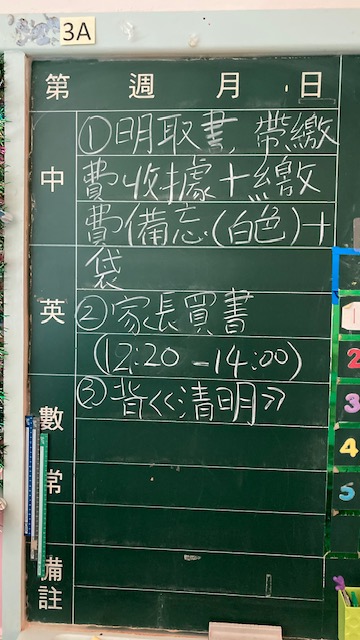 3A
第 週 月 日
中
①明取書,帶繳
費收據+繳
費備忘(白色)+
袋
英
②家長買書
(12:20 -14:00)
③背<<清明>>
數
常
備註
1
2
3
4
5